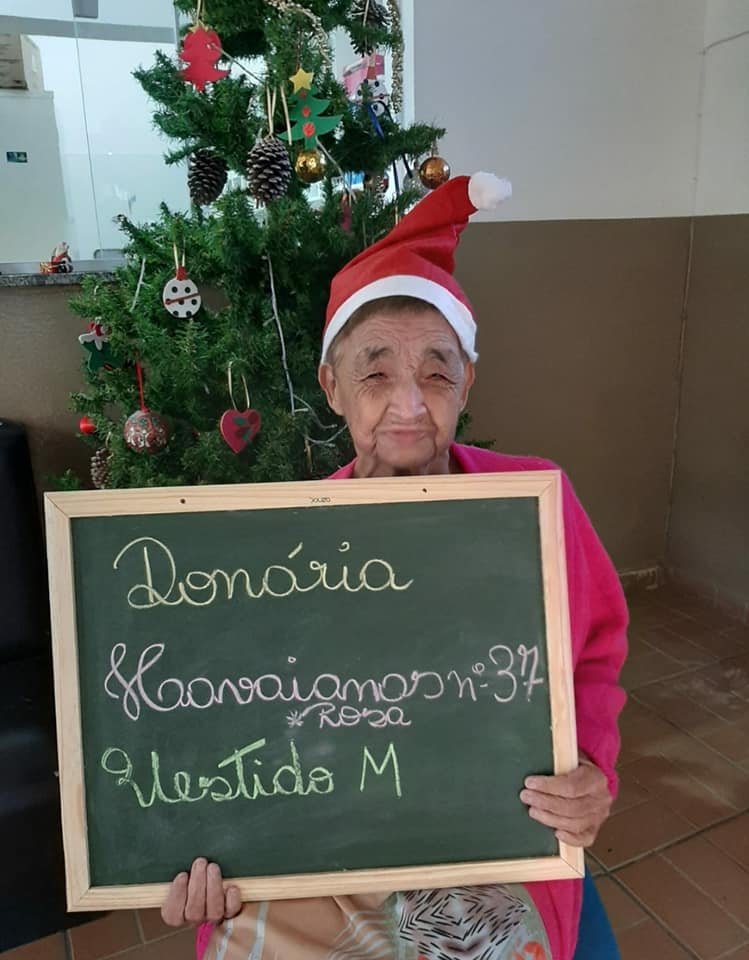 Souza
Donária
Havaianas nº 37
*Rosa
Vestido M